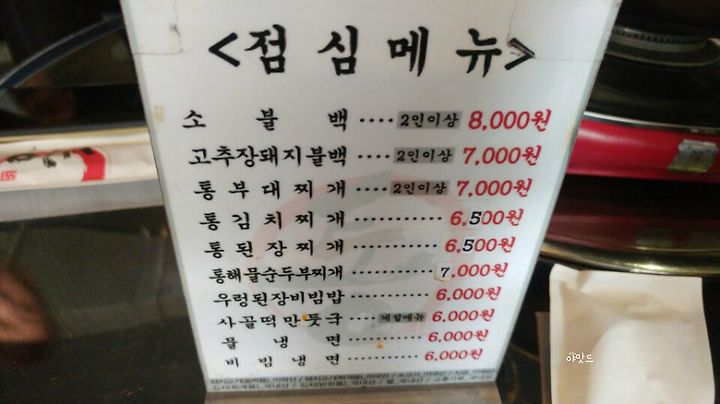 <점심메뉴>
소불백 ···· 2인이상 8,000원
고추장돼지불백 ···· 2인이상 7,000원
통부대찌개 ···· 2인이상 7,000원
통김치찌개 ·········· 6,500원
통된장찌개 ·········· 6,500원
통해물순두부찌개 ·········· 7,000원
우렁된장비빔밥 ·········· 6,000원
사골떡만둣국 ···· 계절메뉴 6,000원
물냉면 ·········· 6,000원
비빔냉면 ·········· 6,000원
야맛드